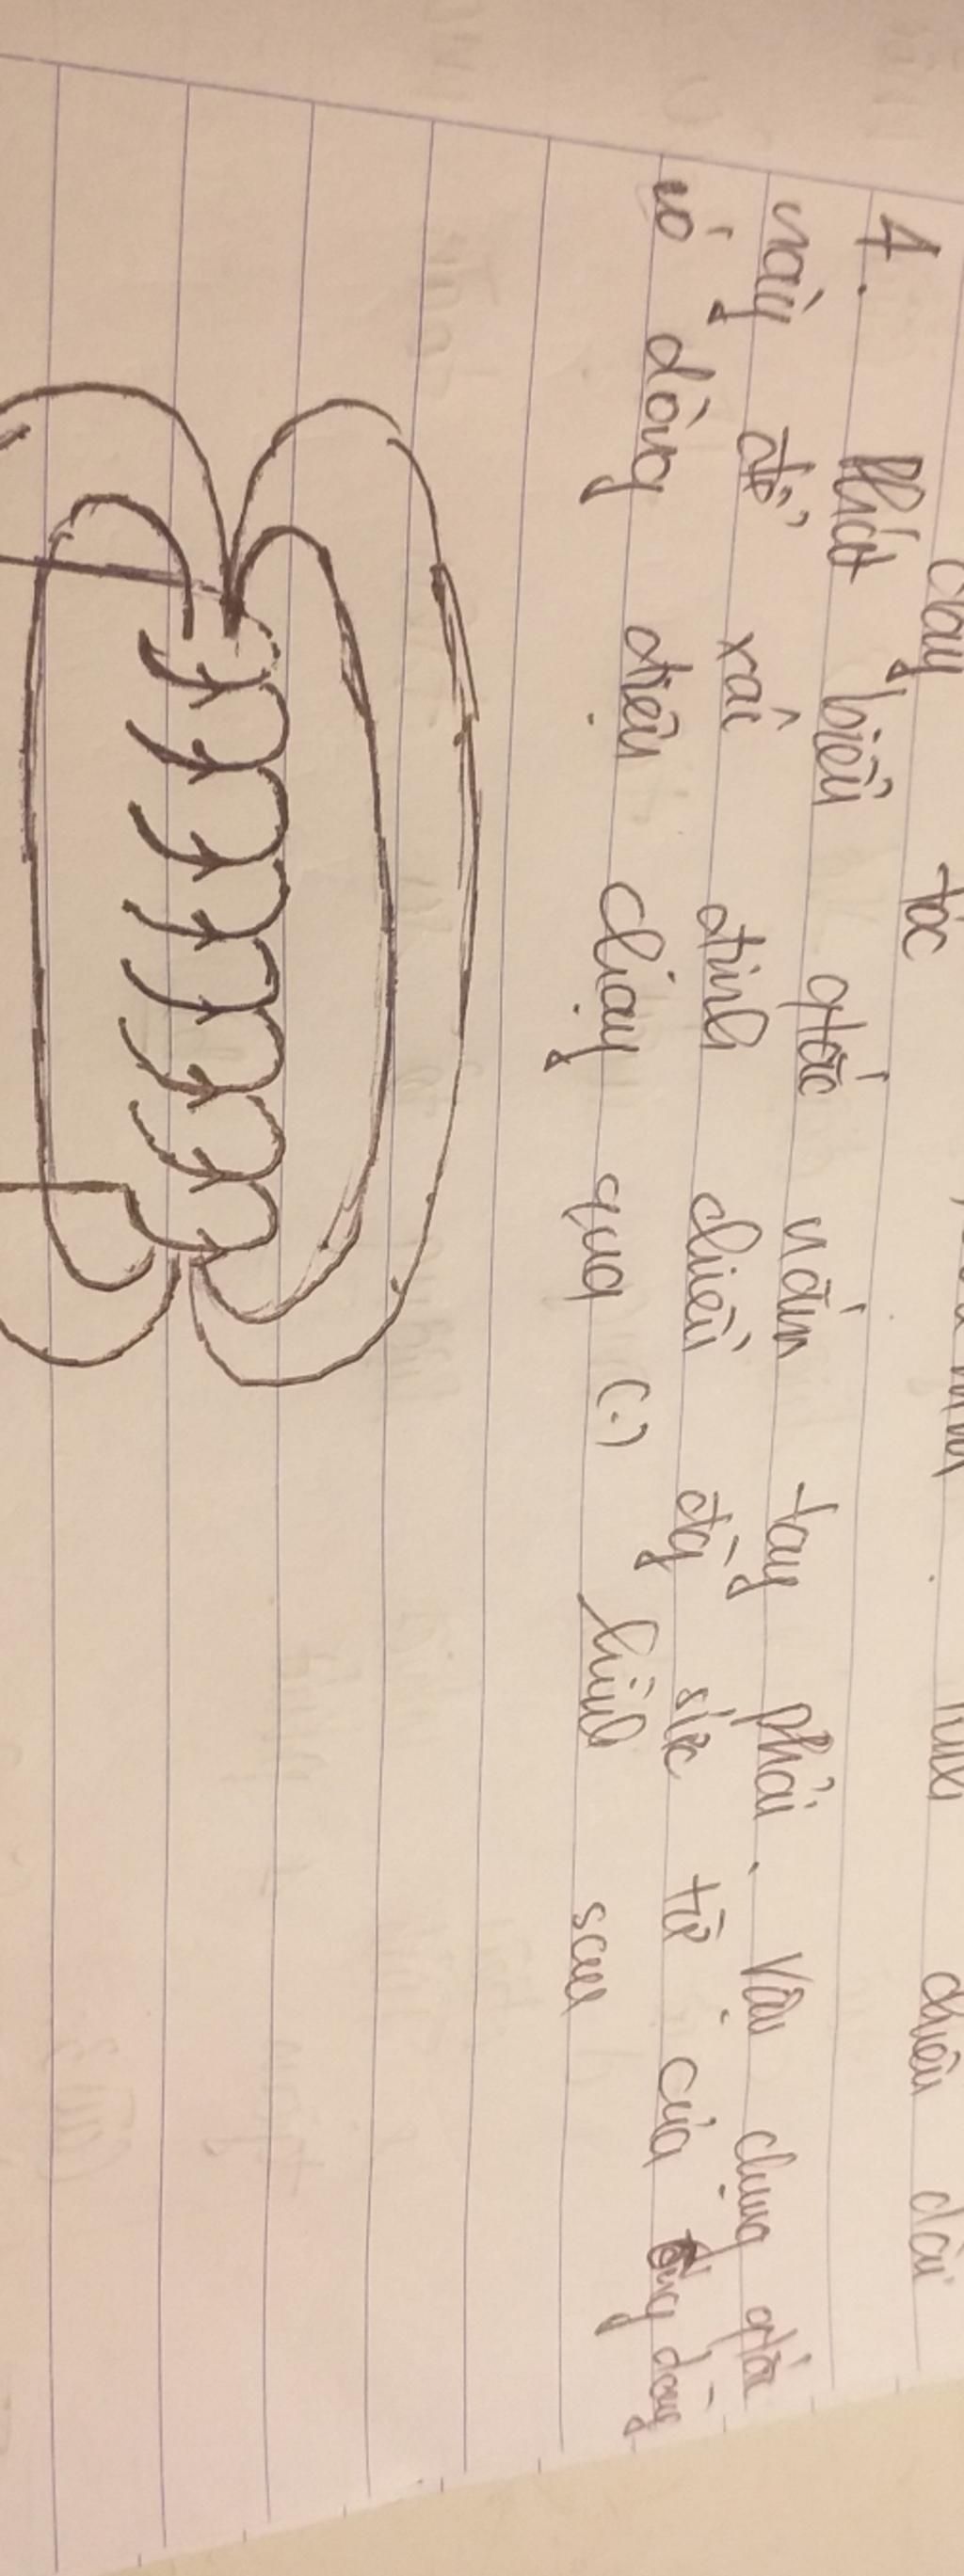 dây tắc chiều dài
1. Phát biểu qtắc nắm tay phải. Vận dụng qtắc
này để xác định chiều đg sức từ của ống dây
có dòng điện chạy qua (.) hình sau